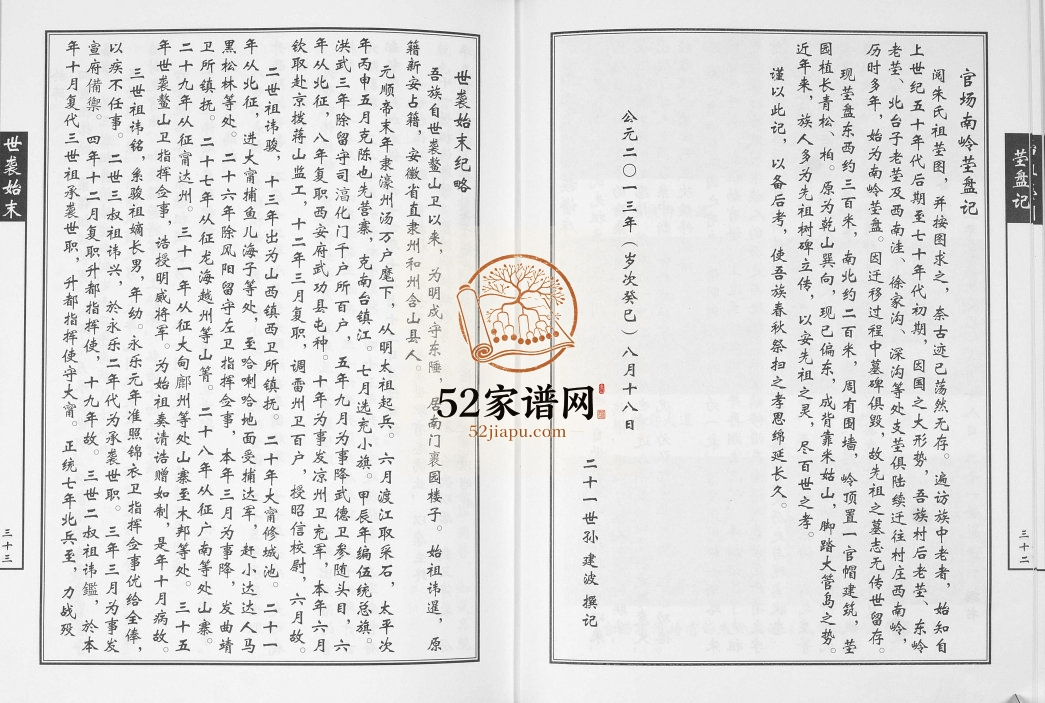 茔盘记
三十二
官场南岭茔盘记
阅朱氏祖茔图，并按图求之，奈古迹已荡然无存。遍访族中老者，始知自
上世纪五十年代后期至七十年代初期，因国之大形势，吾族村后老茔、东岭
老茔、北台子老茔及西南洼、徐家沟、深沟等处支茔俱陆续迁往村庄西南岭，
历时多年，始为南岭茔盘。因迁移过程中墓碑俱毁，故先祖之墓志无传世留存。
现茔盘东西约三百米，南北约二百米，周有围墙，岭顶置一官帽建筑，茔
园植长青松、柏。原为乾山巽向，现已偏东，成背靠米姑山，脚踏大管岛之势。
近年来，族人多为先祖树碑立传，以安先祖之灵，尽百世之孝。
谨以此记，以备后考，使吾族春秋祭扫之孝思绵延长久。
公元二〇一三年（岁次癸巳）八月十八日
二十一世孙 建波 撰记
世袭始末纪略
吾族自世袭鳌山卫以来，为明戍守东陲，居南门里园楼子。始祖讳暹，原
籍新安占籍，安徽省直隶州和州含山县人。
元顺帝末年隶濠州汤万户麾下，从明太祖起兵。六月渡江取采石，太平次
年丙申五月克陈也先营寨，克南台镇江。七月选充小旗。甲辰年编伍统总旗。
洪武三年除留守司淐化门千户所百户，五年九月为事降武德卫参随头目，六
年从北征，八年复职西安府武功县屯种。十年为事发凉州卫充军，本年六月
钦取赴京拨蒋山监工，十二年三月复职，调雷州卫百户，授昭信校尉，六月故。
二世祖讳骏，十三年出为山西镇西卫所镇抚。二十年大甯修城池。二十一
年从北征，进大甯捕鱼儿海子等处，至哈喇哈地面受捕达军，赶小达达人马
黑松林等处。二十六年除凤阳留守左卫指挥佥事，本年三月为事降，发曲靖
卫所镇抚。二十七年从征龙海越州等山箐。二十八年从征广南等处山寨。
二十九年从征甯达州。三十一年从征大甸鄜州等处山寨至木邦等处。三十五
年世袭鳌山卫指挥佥事，诰授明威将军。为始祖奏请诰赠如制，是年十月病故。
三世祖讳铭，系骏祖嫡长男，年幼。永乐元年准照锦衣卫指挥佥事优给全俸，
以疾不任事。二世三叔祖讳兴，於永乐二年代为承袭世职。三年三月为事发
宣府备禦。四年十二月复职升都指挥使，十九年故。三世二叔祖讳鑑，於本
年十月复代三世祖承袭世职，升都指挥使守大甯。正统七年北兵至，力战殁
世袭始末
三十三
52家谱网
52jiapu.com